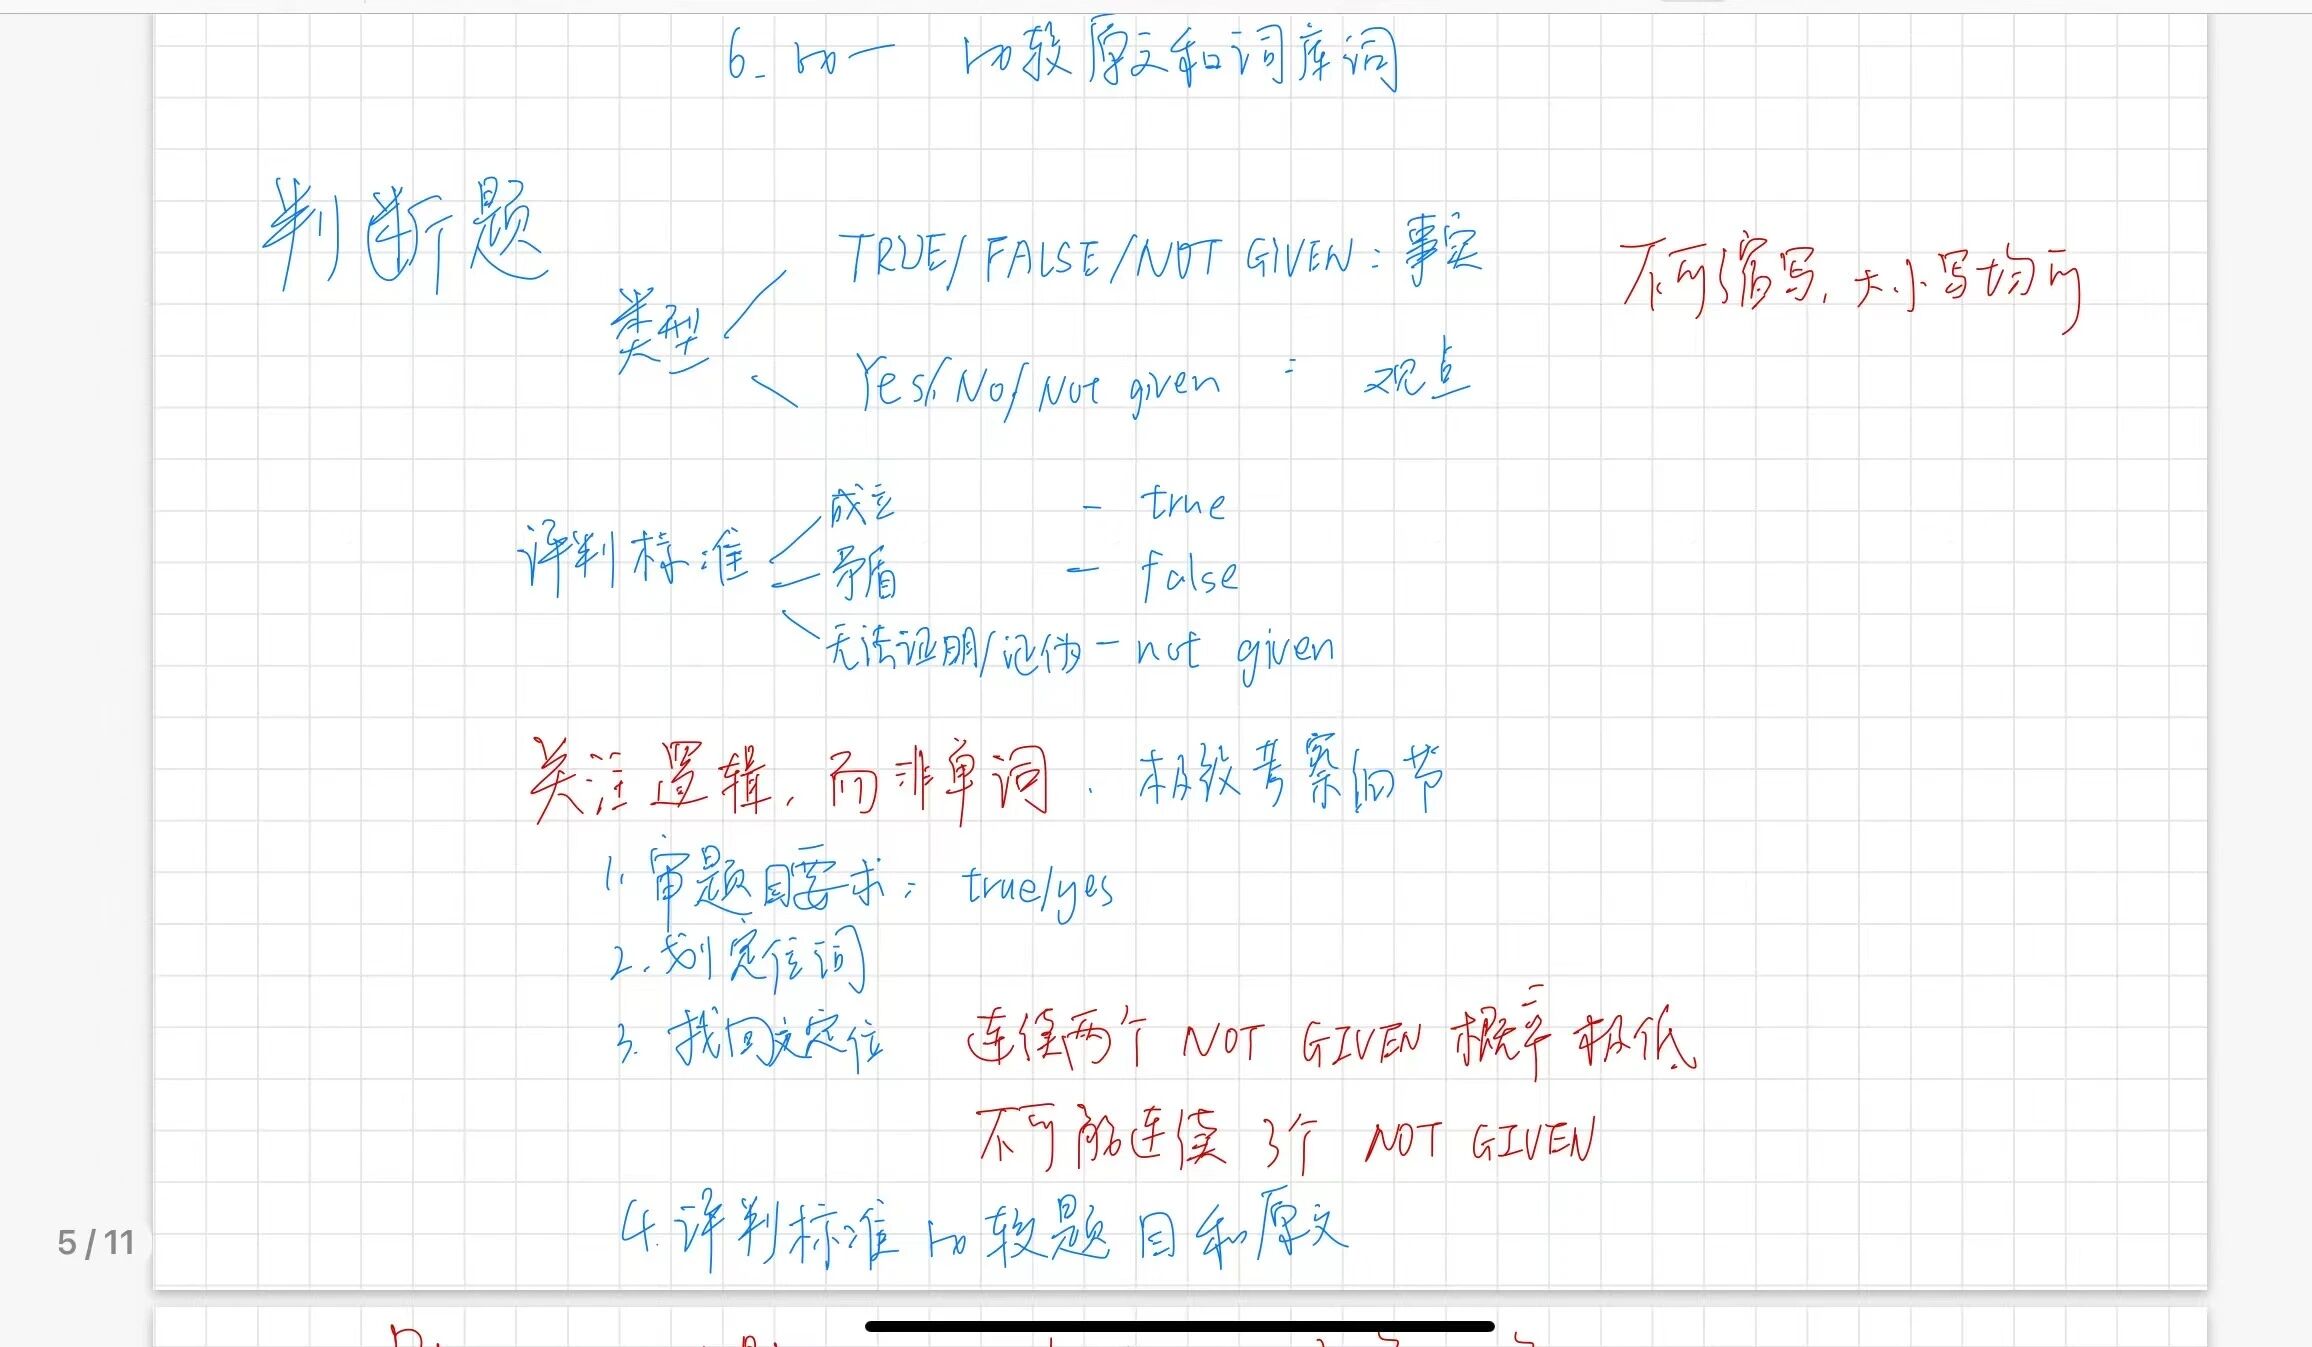 6. 比一 比较原文和词库词
判断题
TRUE/FALSE/NOT GIVEN：事实
不可缩写，大小写均可
类型
Yes/No/Not given ： 观点
成立 - true
评判标准
矛盾 - false
无法证明/证伪 - not given
关注逻辑，而非单词. 极致考察细节
1. 审题目要求： true/yes
2. 划定位词
3. 找回文定位 连续两个 NOT GIVEN 概率极低
不可能连续 3个 NOT GIVEN
4. 评判标准 比较题目和原文
5 / 11